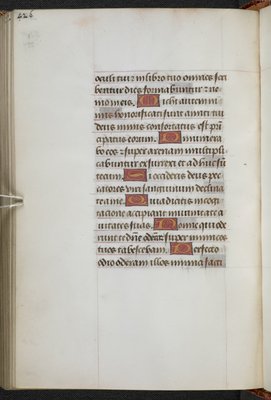 226
oculi tui ⁊ in libro tuo omnes scri
bentur dies formabuntur ⁊ ne
mo in eis. Michi autem ni
mis honorificati sunt amici tui
deus nimis confortatus est prin
cipatus eorum. Dinumera
bo eos ⁊ super arenam multipli
cabuntur exsurrexi et adhuc su
tecum. Si occideris deus pec
catores viri sanguinum declina
te a me. Quia dicitis in cogi
tacione accipiant in vanitate ci
vitates suas. Nonne qui ode
runt te dne oderam ⁊ super inimicos
tuos tabescebam. Perfecto
odio oderam illos inimici facti